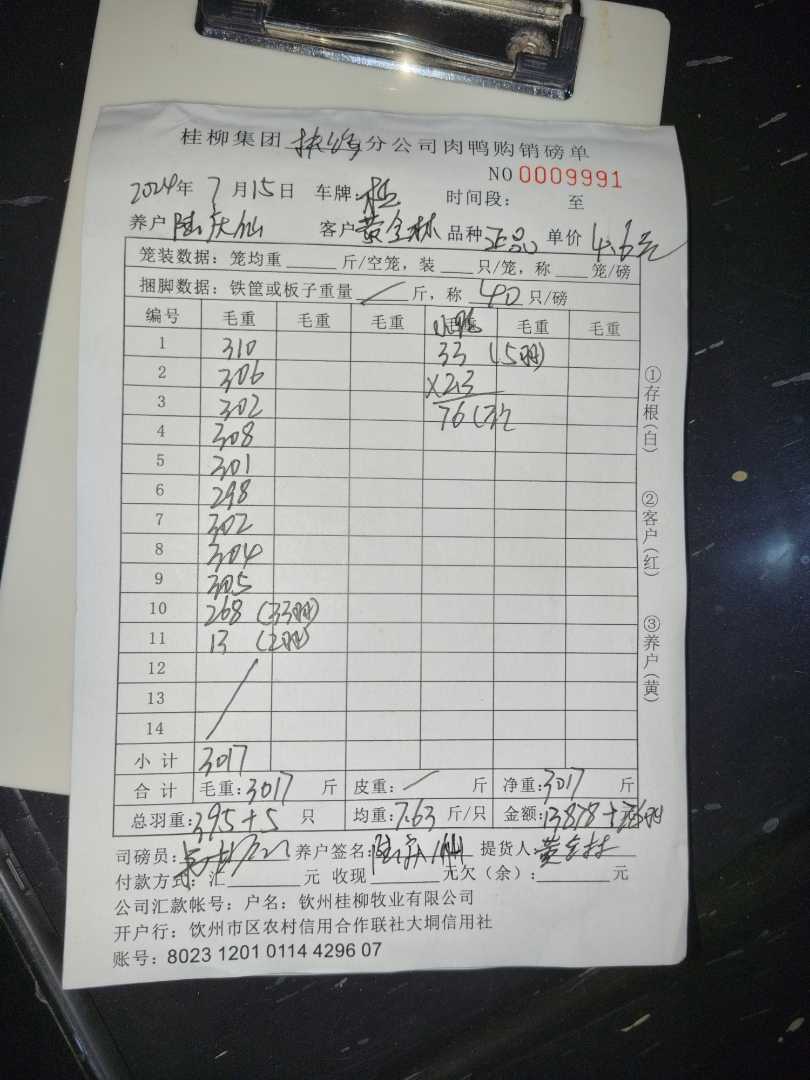 桂柳集团 分公司肉鸭购销磅单
NO 0009991
2024年 7月15日 车牌: 时间段: 至
养户 陆庆仙 客户 黄全林 品种 正品 单价 4.6元
笼装数据:笼均重 斤/空笼,装 只/笼,称 笼/磅
捆脚数据:铁筐或板子重量 / 斤,称 40 只/磅
编号 毛重 毛重 毛重 小鸭 毛重 毛重
1 310 33 (5羽)
2 306 ×2.3
3 302 76
4 308
5 301
6 298
7 302
8 304
9 305
10 268 (33羽)
11 13 (2羽)
12
13
14
小计 3017
合计 毛重:3017 斤 皮重: / 斤 净重:3017 斤
总羽重:395+5 只 均重:7.63 斤/只 金额:13878+
司磅员: 养户签名:陆庆仙 提货人:黄全林
付款方式:汇 元 收现 元欠(余): 元
公司汇款帐号:户名:钦州桂柳牧业有限公司
开户行:饮州市区农村信用合作联社大垌信用社
账号:8023 1201 0114 4296 07
①存根(白)
②客户(红)
③养户(黄)